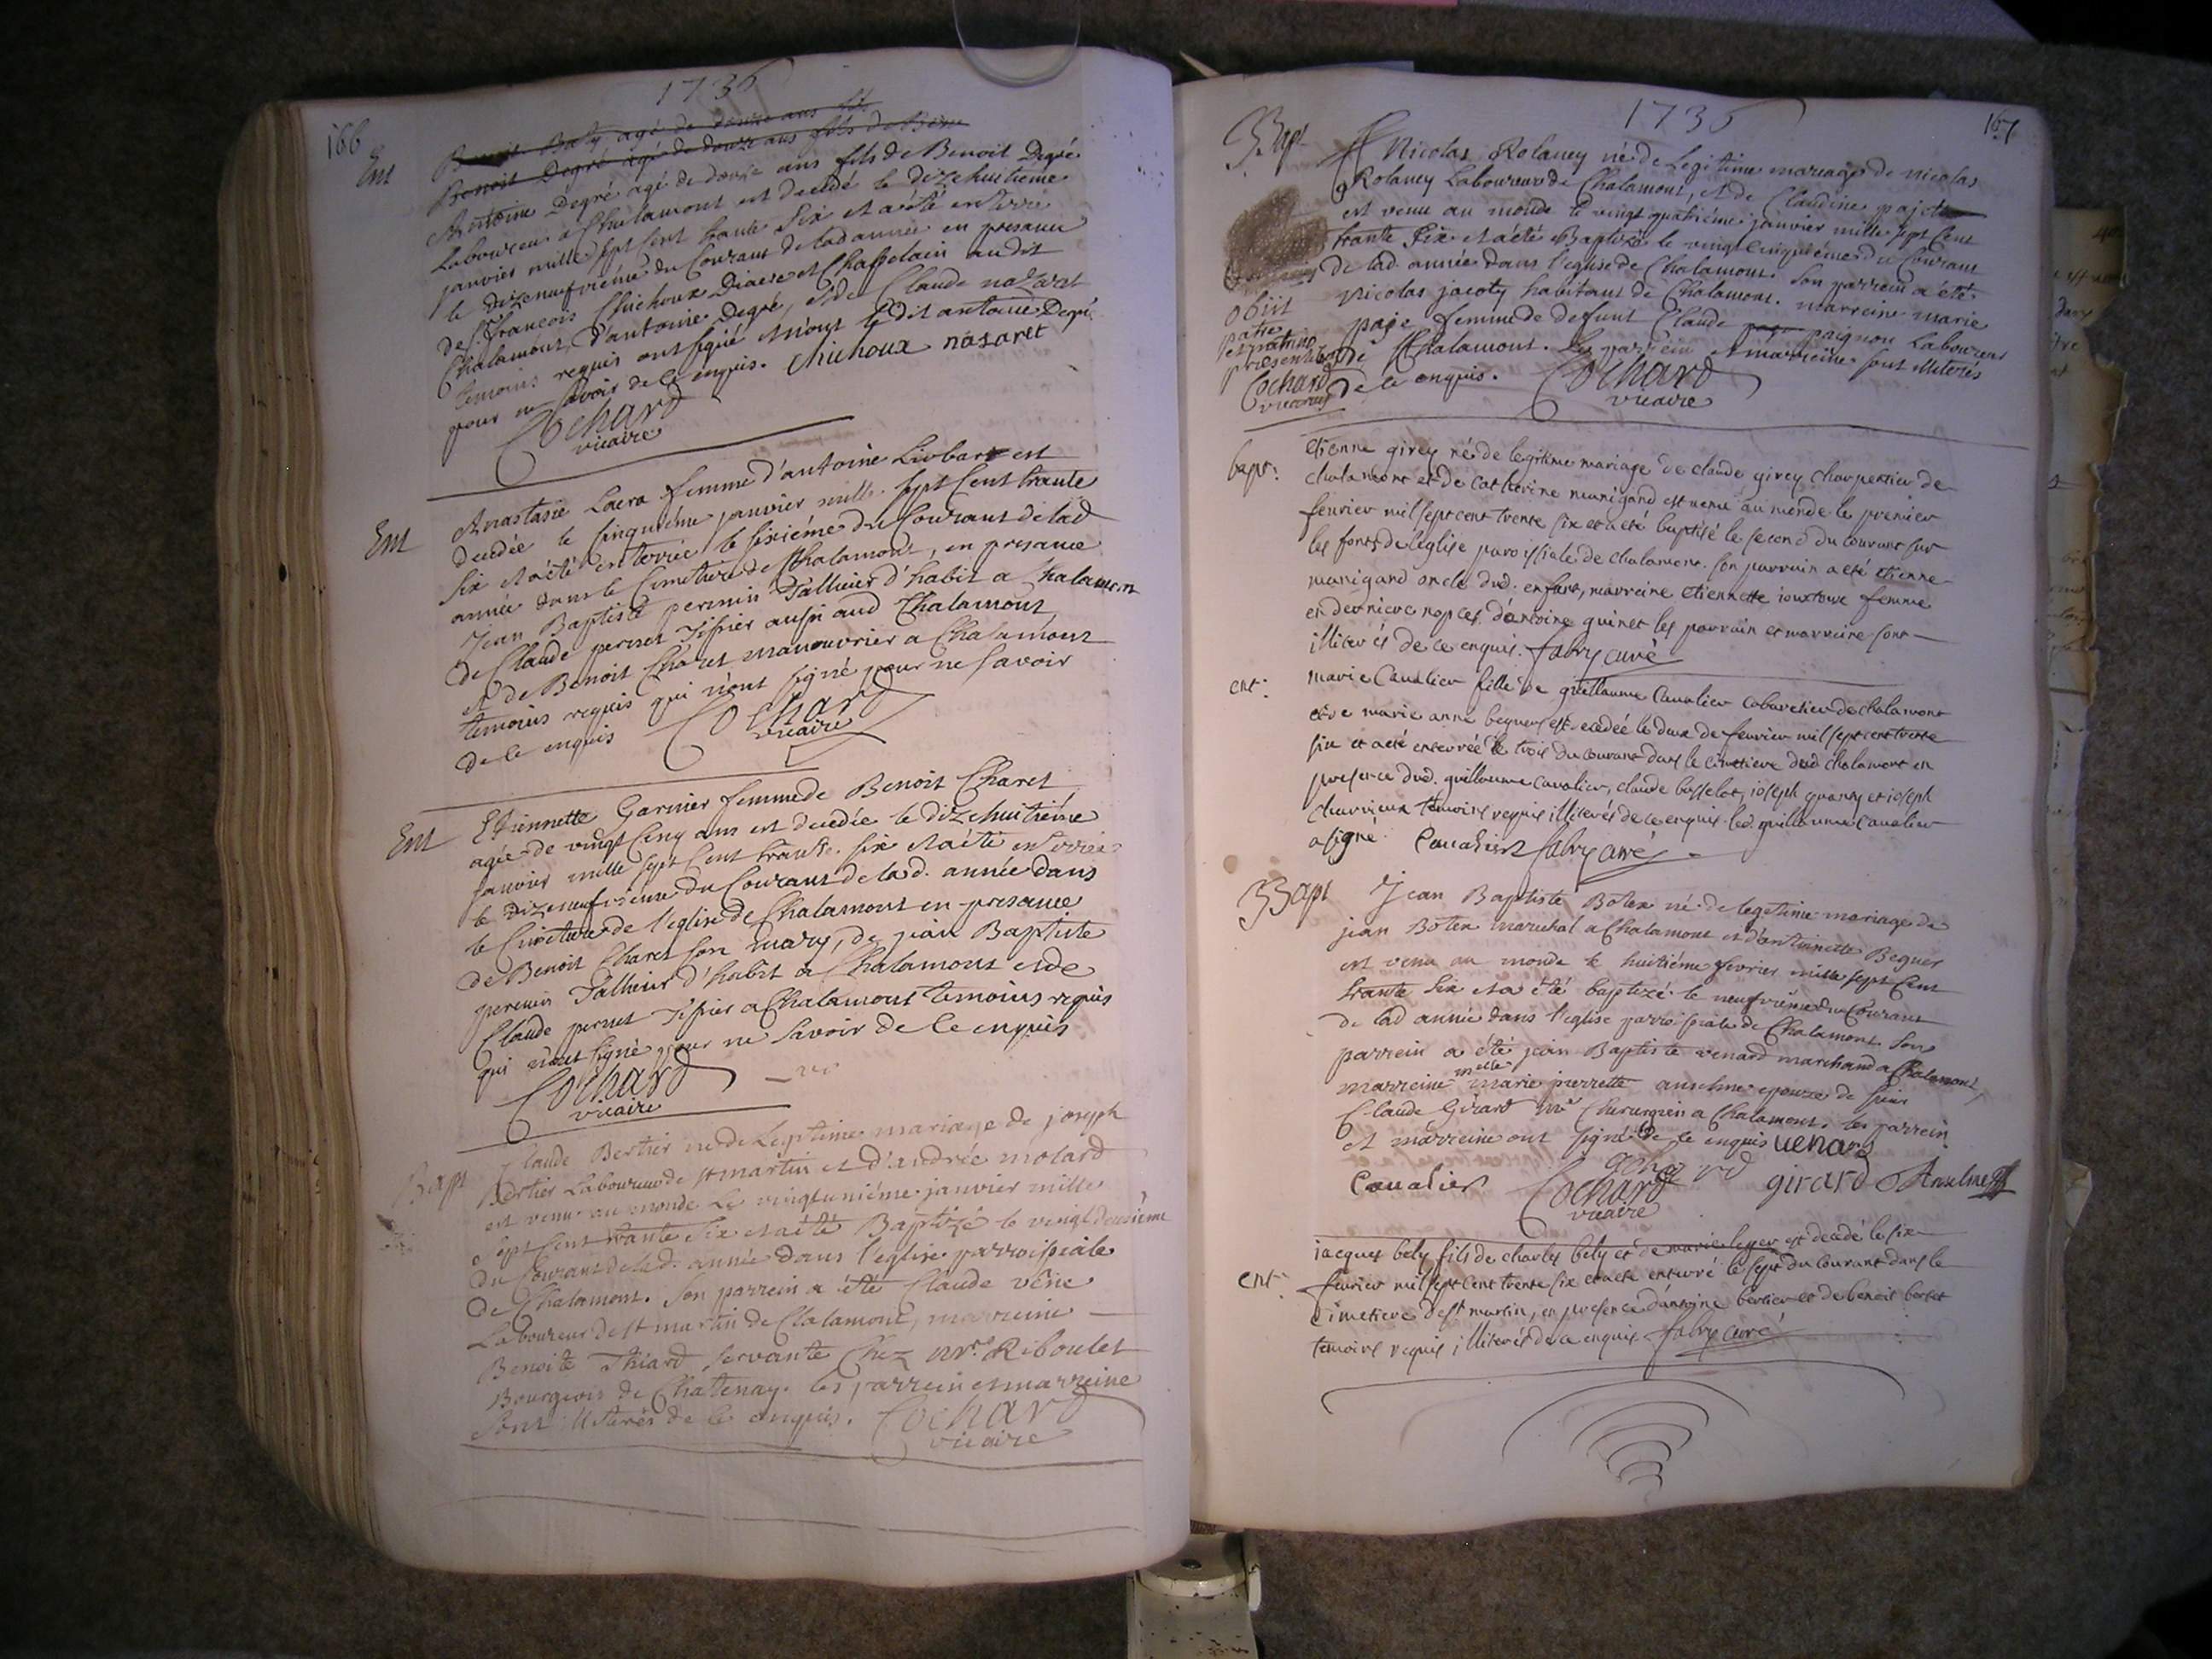 166
1736
Ent
Benoit Baty agé de douze ans fil
Benoit Degré agé de douze ans fils de Beno
Antoine Degré agé de douze ans fils de Benoit Degré
Laboureur a Chalamont est decedé le dizehuitieme
janvier mille sept cent trante six et a été enterré
le dizeneufvième du Courant de lad année en presance
de s.r françois Chichoux Diacre et Chappelain audit
Chalamont, d'antoine Degré, et de Claude nazaret
temoins requis ont signé et non ledit antoine Degré
pour ne savoir de ce enquis. Chichoux nasaret
Cochard
vicaire
Ent
Anastasie Lacra femme d'antoine Liobart est
decedée le cinquième janvier mille sept cent trante
six et a été enterrée le sixiéme du Courant de lad
année dans le Cimetiere de Chalamont, en presance
Jean Baptiste permin Tallieur d'habit a Chalamont
de Claude pernet Tissier aussi aud Chalamont
et de Benoit Charet manouvrier a Chalamont
temoins requis qui n'ont signé pour ne savoir
de ce enquis
Cochard
vicaire
Ent
Etiennette Garnier femme de Benoit Charet
agée de vingt cinq ans est decedée le dizehuitiéme
janvier mille sept cent trante six et a été enterrée
le dizeneufvieme du Courant de lad. année dans
le Cimetiere de l'eglise de Chalamont en presance
de Benoit Charet son mary, de jean Baptiste
permin Tallieur d'habit a Chalamont et de
Claude pernet Tissier a Chalamont temoins requis
qui n'ont signé pour ne savoir de ce enquis
Cochard
vicaire
Bapt
Claude Bertier né de Legitime mariage de joseph
Bertier Laboureur de st martin et d'andrée molard
est venu au monde le vingtuniéme janvier mille
sept cent trante six et a été Baptizé le vingtdeuxième
du Courant de lad. année dans l'eglise parroissiale
de Chalamont. Son parrein a été Claude vêne
Laboureur de st martin de Chalamont, marreine
Benoite Thiard servante chez mr. Riboulet
Bourgeois de Chatenay. les parrein et marreine
sont illiterés de ce enquis. Cochard
vicaire
1736
167
Bapt
Nicolas Rolancy né de Legitime mariage de nicolas
Rolancy Laboureur de Chalamont, et de Claudine paje
est venu au monde le vingt quatriéme janvier mille sept cent
trante six et a été Baptizé le vingtcinquiéme du Courant
de lad. année dans l'eglise de Chalamont. Son parrein a été
nicolas jacoty habitant de Chalamont. marreine marie
paje femme de defunt Claude paignon Laboureur
de Chalamont. Les parrein et marreine sont illiterés
de ce enquis. Cochard
vicaire
obiit
patre
et patrino
presentibus
Cochard
vicarius
bapt:
etienne girey né de legitime mariage de claude girey charpentier de
chalamont et de catherine manigand est venu au monde le premier
fevrier mil sept cent trente six et a eté baptisé le second du courant sur
les fonts de l'eglise paroissiale de chalamont. son parrain a eté etienne
manigand oncle dud. enfant, marreine etiennette iouxtoux femme
en derniere nopces d'antoine guinet les parrain et marreine sont
illiterés de ce enquis. fabry curé
ent:
marie Cavalier fille de guillaume Cavalier cabaretier de chalamont
et de marie anne beguer est decedée le deux de fevrier mil sept cent trente
six et a eté enterrée le trois du courant dans le cimetiere dud chalamont en
presence dud. guillaume cavalier, claude busselot, ioseph guarry et ioseph
charvieux temoins requis illiterés de ce enquis led. guillaume cavalier
a signé. Cavalier fabry curé
Bapt
Jean Baptiste Botex né de legetime mariage de
jean Botex marechal a Chalamont et d'antoinette Beguer
est venu au monde le huitiéme fevrier mille sept cent
trante six et a été baptizé le neufviéme du Courant
de lad année dans l'eglise parroissiale de Chalamont. Son
parrein a été jean Baptiste venard marchand a Chalamont,
marreine melle marie pierrette anselme epouze de sieur
Claude Girard me Chirurgien a Chalamont. les parrein
et marreine ont signé de ce enquis venard
Cavalier Cochard girard Anselme
vicaire
ent:
iacques bely fils de charles bely et de marie leger est decedé le six
fevrier mil sept cent trente six et a eté enterré le sept du courant dans le
cimetiere de st martin, en presence d'antoine bertier et de benoit borlet
temoins requis illiterés de ce enquis fabry curé